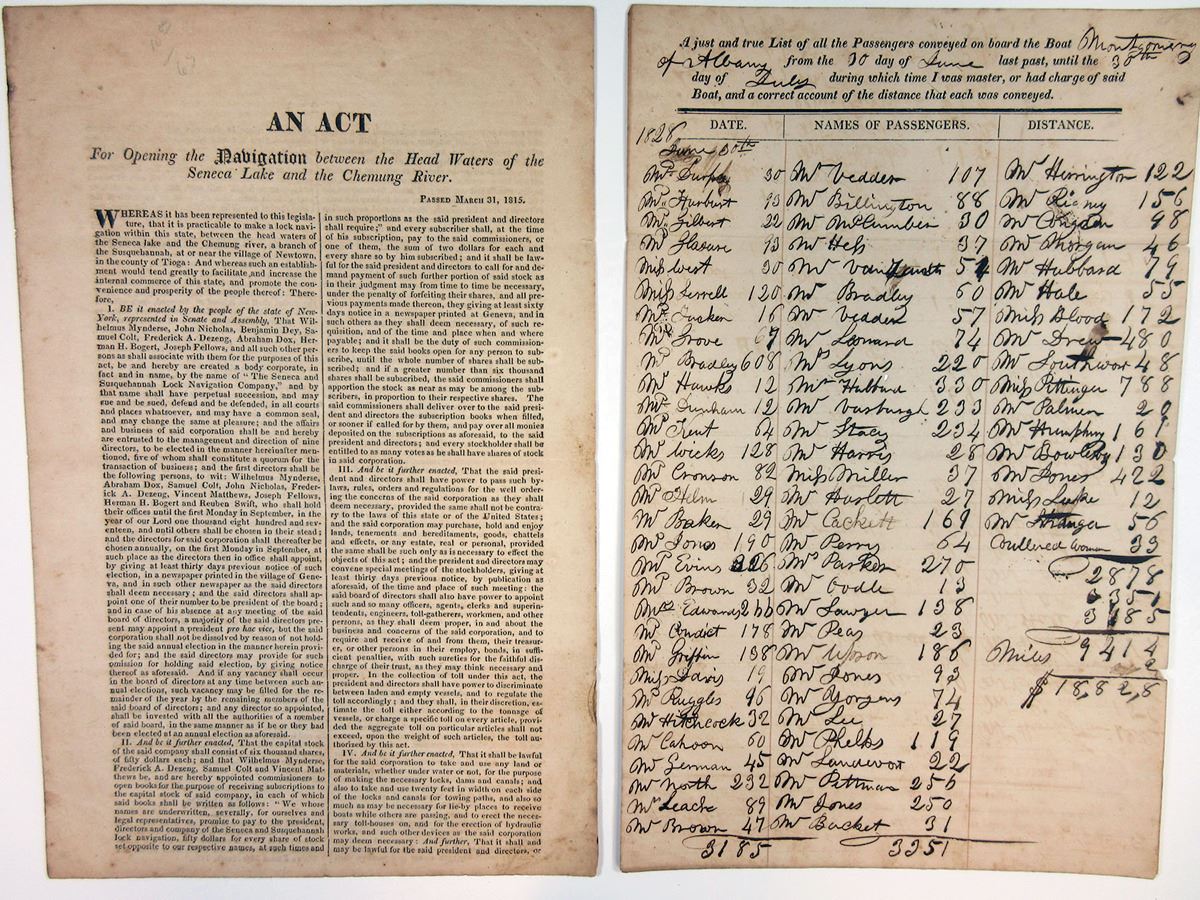 AN ACT
For Opening the Navigation between the Head Waters of the
Seneca Lake and the Chemung River.
PASSED MARCH 31, 1815.
WHEREAS it has been represented to this legisla-
ture, that it is practicable to make a lock navi-
gation within this state, between the head waters of
the Seneca lake and the Chemung river, a branch of
the Susquehannah, at or near the village of Newtown,
in the county of Tioga: And whereas such an establish-
ment would tend greatly to facilitate and increase the
internal commerce of this state, and promote the con-
venience and prosperity of the people thereof: There-
fore,
I. BE it enacted by the people of the state of New-
York, represented in Senate and Assembly, That Wil-
helmus Mynderse, John Nicholas, Benjamin Dey, Sa-
muel Colt, Frederick A. Dezeng, Abraham Dox, Her-
man H. Bogert, Joseph Fellows, and all such other per-
sons as shall associate with them for the purposes of this
act, be and hereby are created a body corporate, in
fact and in name, by the name of "The Seneca and
Susquehannah Lock Navigation Company," and by
that name shall have perpetual succession, and may
sue and be sued, defend and be defended, in all courts
and places whatsoever, and may have a common seal,
and may change the same at pleasure; and the affairs
and business of said corporation shall be and hereby
are entrusted to the management and direction of nine
directors, to be elected in the manner hereinafter men-
tioned, five of whom shall constitute a quorum for the
transaction of business; and the first directors shall be
the following persons, to wit: Wilhelmus Mynderse,
Abraham Dox, Samuel Colt, John Nicholas, Freder-
ick A. Dezeng, Vincent Matthews, Joseph Fellows,
Herman H. Bogert and Reuben Swift, who shall hold
their offices until the first Monday in September, in the
year of our Lord one thousand eight hundred and sev-
enteen, and until others shall be chosen in their stead;
and the directors for said corporation shall thereafter be
chosen annually, on the first Monday in September, at
such place as the directors then in office shall appoint,
by giving at least thirty days previous notice of such
election, in a newspaper printed in the village of Gene-
va, and in such other newspaper as the said directors
shall deem necessary; and the said directors shall ap-
point one of their number to be president of the board;
and in case of his absence at any meeting of the said
board of directors, a majority of the said directors pre-
sent may appoint a president pro hac vice, but the said
corporation shall not be dissolved by reason of not hold-
ing the said annual election in the manner herein provid-
ed for; and the said directors may provide for such
omission for holding said election, by giving notice
thereof as aforesaid. And if any vacancy shall occur
in the board of directors at any time between such an-
nual elections, such vacancy may be filled for the re-
mainder of the year by the remaining members of the
said board of directors; and any director so appointed,
shall be invested with all the authorities of a member
of said board, in the same manner as if he or they had
been elected at an annual election as aforesaid.
II. And be it further enacted, That the capital stock
of the said company shall consist of six thousand shares,
of fifty dollars each; and that Wilhelmus Mynderse,
Frederick A. Dezeng, Samuel Colt and Vincent Mat-
thews be, and are hereby appointed commissioners to
open books for the purpose of receiving subscriptions to
the capital stock of said company, in each of which
said books shall be written as follows: "We whose
names are underwritten, severally, for ourselves and
legal representatives, promise to pay to the president,
directors and company of the Seneca and Susquehannah
lock navigation, fifty dollars for every share of stock
set opposite to our respective names, at such times and
in such proportions as the said president and directors
shall require;" and every subscriber shall, at the time
of his subscription, pay to the said commissioners, or
one of them, the sum of two dollars for each and
every share so by him subscribed; and it shall be law-
ful for the said president and directors to call for and de-
mand payment of such further portion of said stock as
in their judgment may from time to time be necessary,
under the penalty of forfeiting their shares, and all pre-
vious payments made thereon, they giving at least sixty
days notice in a newspaper printed at Geneva, and in
such others as they shall deem necessary, of such re-
quisition, and of the time and place when and where
payable; and it shall be the duty of such commission-
ers to keep the said books open for any person to sub-
scribe, until the whole number of shares shall be sub-
scribed; and if a greater number than six thousand
shares shall be subscribed, the said commissioners shall
apportion the stock as near as may be among the sub-
scribers, in proportion to their respective shares. The
said commissioners shall deliver over to the said presi-
dent and directors the subscription books when filled,
or sooner if called for by them, and pay over all monies
deposited on the subscriptions as aforesaid, to the said
president and directors; and every stockholder shall be
entitled to as many votes as he shall have shares of stock
in said corporation.
III. And be it further enacted, That the said presi-
dent and directors shall have power to pass such by-
laws, rules, orders and regulations for the well order-
ing the concerns of the said corporation as they shall
deem necessary, provided the same shall not be contra-
ry to the laws of this state or of the United States;
and the said corporation may purchase, hold and enjoy
lands, tenements and hereditaments, goods, chattels
and effects, or any estate, real or personal, provided
the same shall be such only as is necessary to effect the
objects of this act; and the president and directors may
convene special meetings of the stockholders, giving at
least thirty days previous notice, by publication as
aforesaid, of the time and place of such meeting: the
said board of directors shall also have power to appoint
such and so many officers, agents, clerks and superin-
tendents, engineers, toll-gatherers, workmen, and other
persons, as they shall deem proper, in and about the
business and concerns of the said corporation, and to
require and receive of and from them, their treasur-
er, or other persons in their employ, bonds, in suffi-
cient penalties, with such sureties for the faithful dis-
charge of their trust, as they may think necessary and
proper. In the collection of toll under this act, the
president and directors shall have power to discriminate
between laden and empty vessels, and to regulate the
toll accordingly; and they shall, in their discretion, es-
timate the toll either according to the tonnage of
vessels, or charge a specific toll on every article, provi-
ded the aggregate toll on particular articles shall not
exceed, upon the weight of such articles, the toll au-
thorized by this act.
IV. And be it further enacted, That it shall be lawful
for the said corporation to take and use any land or
materials, whether under water or not, for the purpose
of making the necessary locks, dams and canals; and
also to take and use twenty feet in width on each side
of the locks and canals for towing paths, and also so
much as may be necessary for lie-by places to receive
boats while others are passing, and to erect the neces-
sary toll-houses on, and for the erection of hydraulic
works, and such other devices as the said corporation
may deem necessary: And further, That it shall and
may be lawful for the said president and directors, or
A just and true List of all the Passengers conveyed on board the Boat Montgomery
of Albany from the 30 day of June last past, until the 30th
day of July during which time I was master, or had charge of said
Boat, and a correct account of the distance that each was conveyed.
DATE. NAMES OF PASSENGERS. DISTANCE.
1828
June 30th
30 Mr Vedder 107 Mr Herrington 122
Mr Hurburt 93 Mr Billington 88 156
Mr Gilbert 22 Mr McCumber 30 98
93 Mr Hess 37 Mr Morgan 46
Miss West 30 Mr Hubbard 79
120 Mr Bradley 60 Mr Hale 55
16 Mr Vedder 57 Miss Blood 172
Mr Grove 67 Mr Leonard 74 Mr Drew 480
Mr Bradley 608 Mr Lyons 220 Mr Southwor 48
Mr Hawks 12 Mr Hubbard 330 Miss Pottinger 788
Mr Dunham 12 Mr Vasburgh 233 Mr Palmer 20
Mr Trent 64 Mr Stacy 234 Mr Humphry 161
Mr Wicks 128 Mr Harris 28 130
Mr Cronson 82 Miss Miller 37 Mr Jones 422
Mr Helm 29 Mr Haslett 27 Miss Luke 12
Mr Baker 29 Mr Cackett 169 56
Mr Jones 190 Mr Perry 64 Coullered woman 33
Mr Evins Mr Parker 270 2878
Mr Brown 32 13 3351
Mrs Edwards 266 Mr Sawyer 138 3185
Mr Condict 178 Mr Peas 23
Mr Griffin 138 Mr Upson 186 Miles 9414
Miss Davis 19 Mr Jones 93 2
Mr Ruggles 96 Mr Yorgens 74 $18,82,8
Mr Hitchcock 32 Mr Lee 27
Mr Cahoon 60 Mr Phelps 119
Mr German 45 22
Mr North 232 Mr Pittman 256
Mr Leache 89 Mr Jones 250
Mr Brown 47 Mr Backet 31
3185 3351